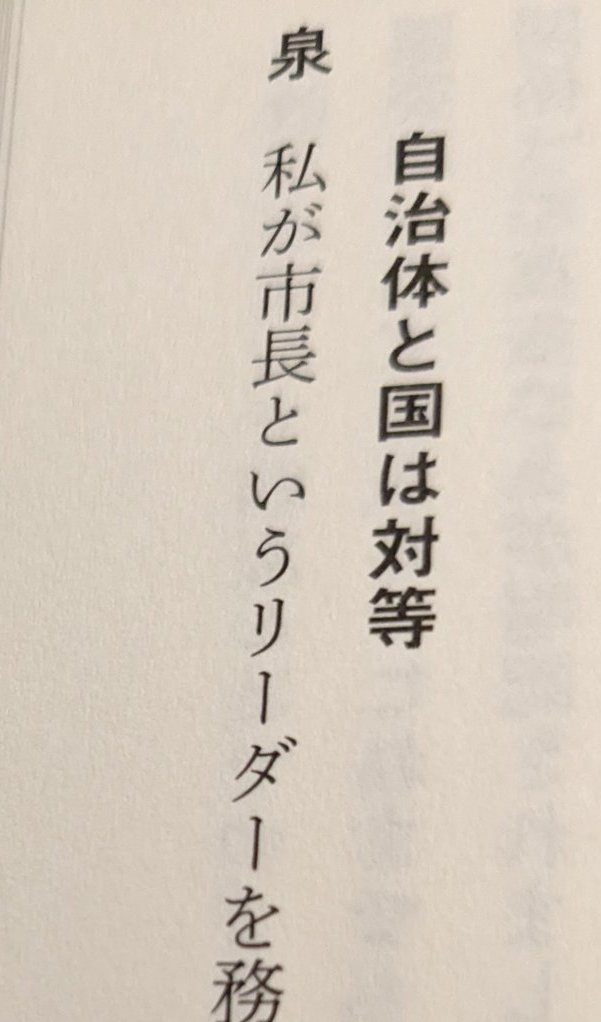 自治体と国は対等
泉　私が市長というリーダーを務